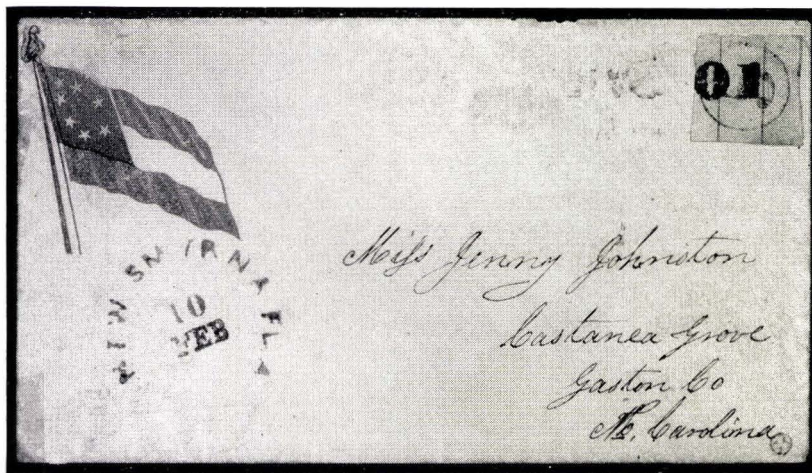 10
NEW SMYRNA FLA
10
FEB
Miss Jenny Johnston
Castanea Grove
Gaston Co
N. Carolina